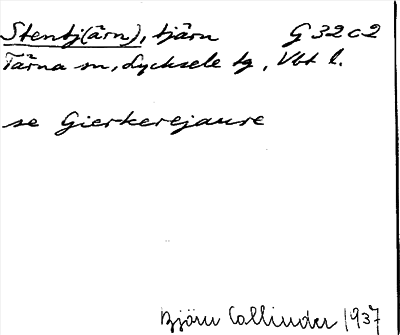 Stentj(ärn), tjärn G 32 c 2
Tärna sn, Lycksele tg, Vbt l.
se Gierkerejaure
Björn Collinder 1937